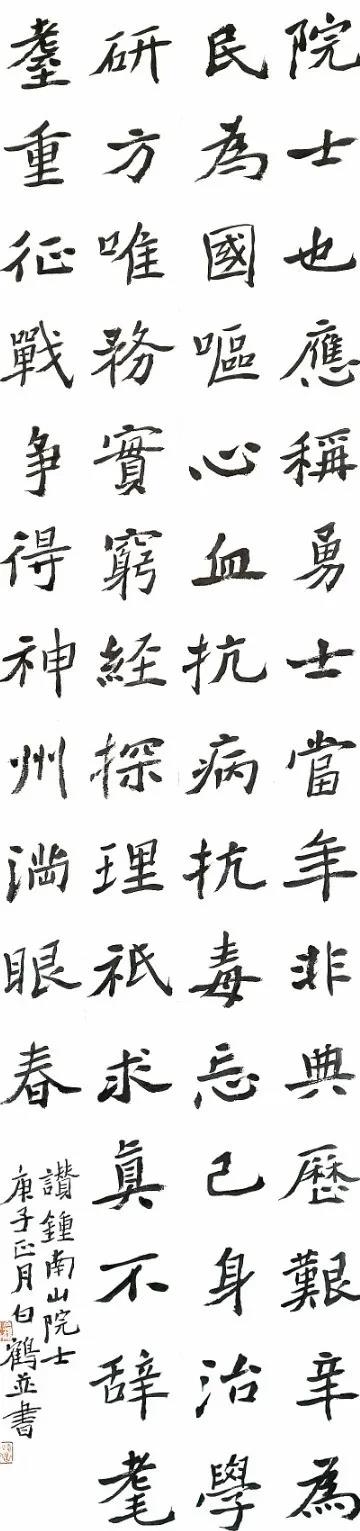 院士也應稱勇士當年非典歷艱辛為
民為國嘔心血抗病抗毒忘己身治學
研方唯務實窮經探理祇求真不辭耄
耋重征戰爭得神州滿眼春
讚鍾南山院士
庚子正月白鶴並書